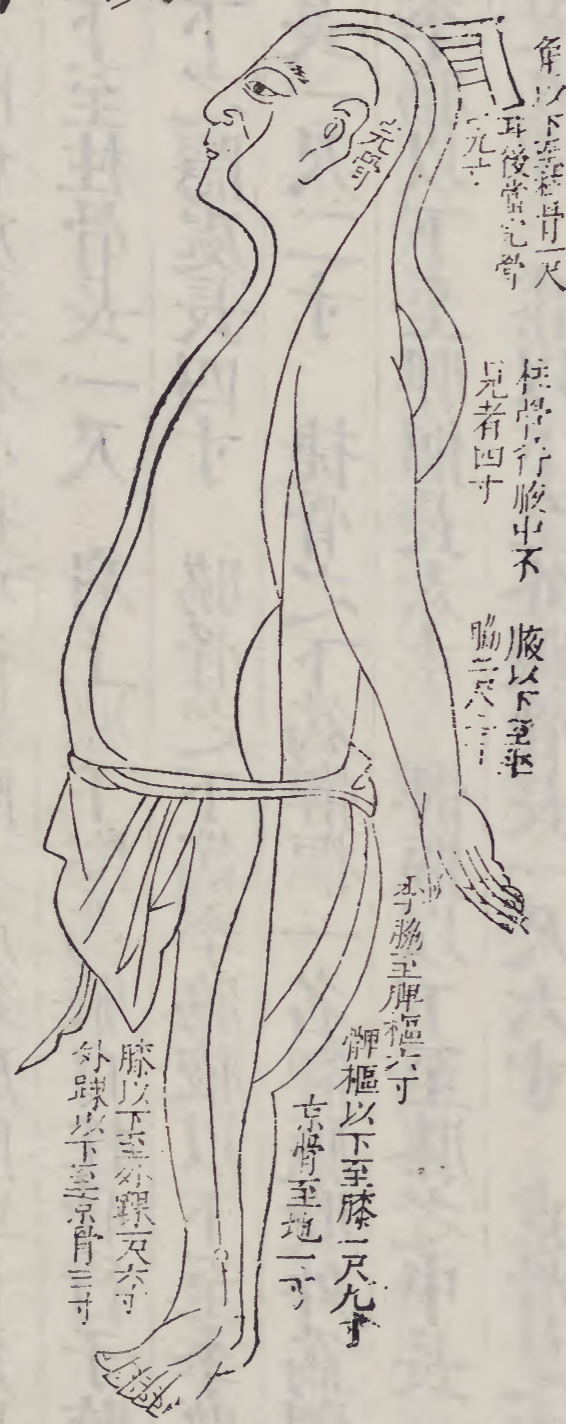 角以下至柱骨一尺
耳後當完骨
九寸
完骨
柱骨行腋中不
見者四寸
腋以下至季
脇一尺二寸
季脇至髀樞六寸
髀樞以下至膝一尺九寸
京骨至地一寸
膝以下至外踝一尺六寸
外踝以下至京骨三寸